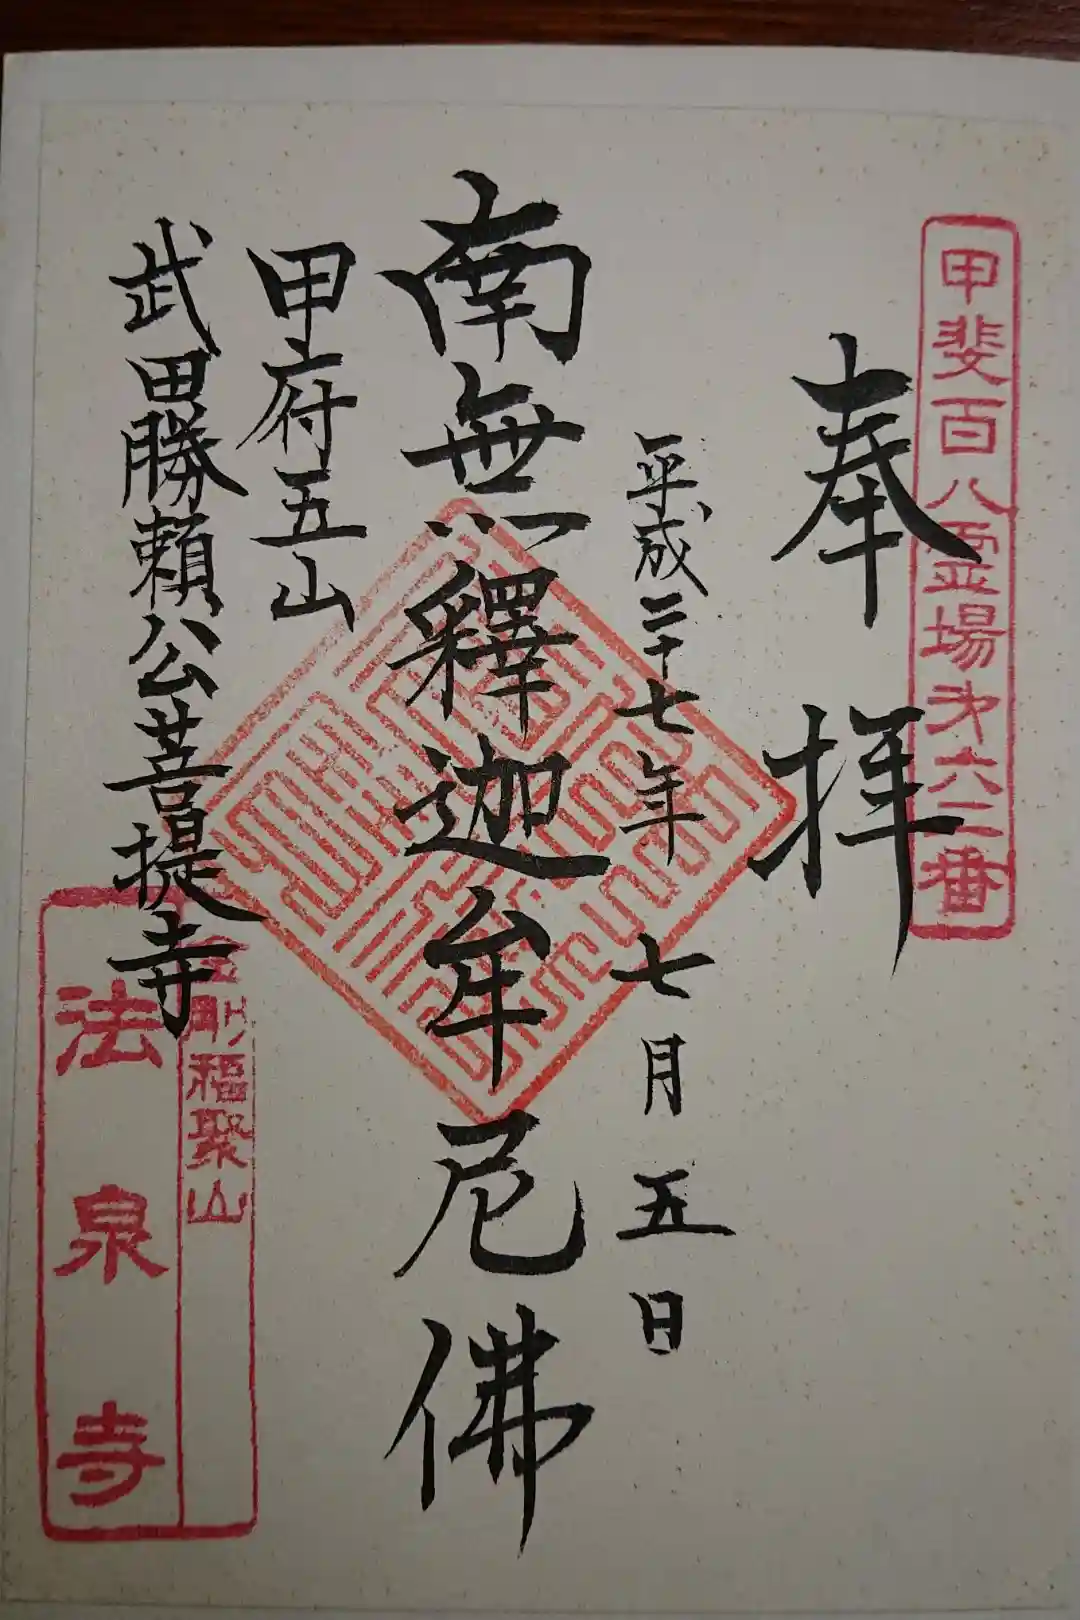 甲斐百八霊場第六二番
奉拝
平成二十七年七月五日
南無釋迦牟尼佛
甲府五山
武田勝頼公菩提寺
金剛福聚山
法泉寺